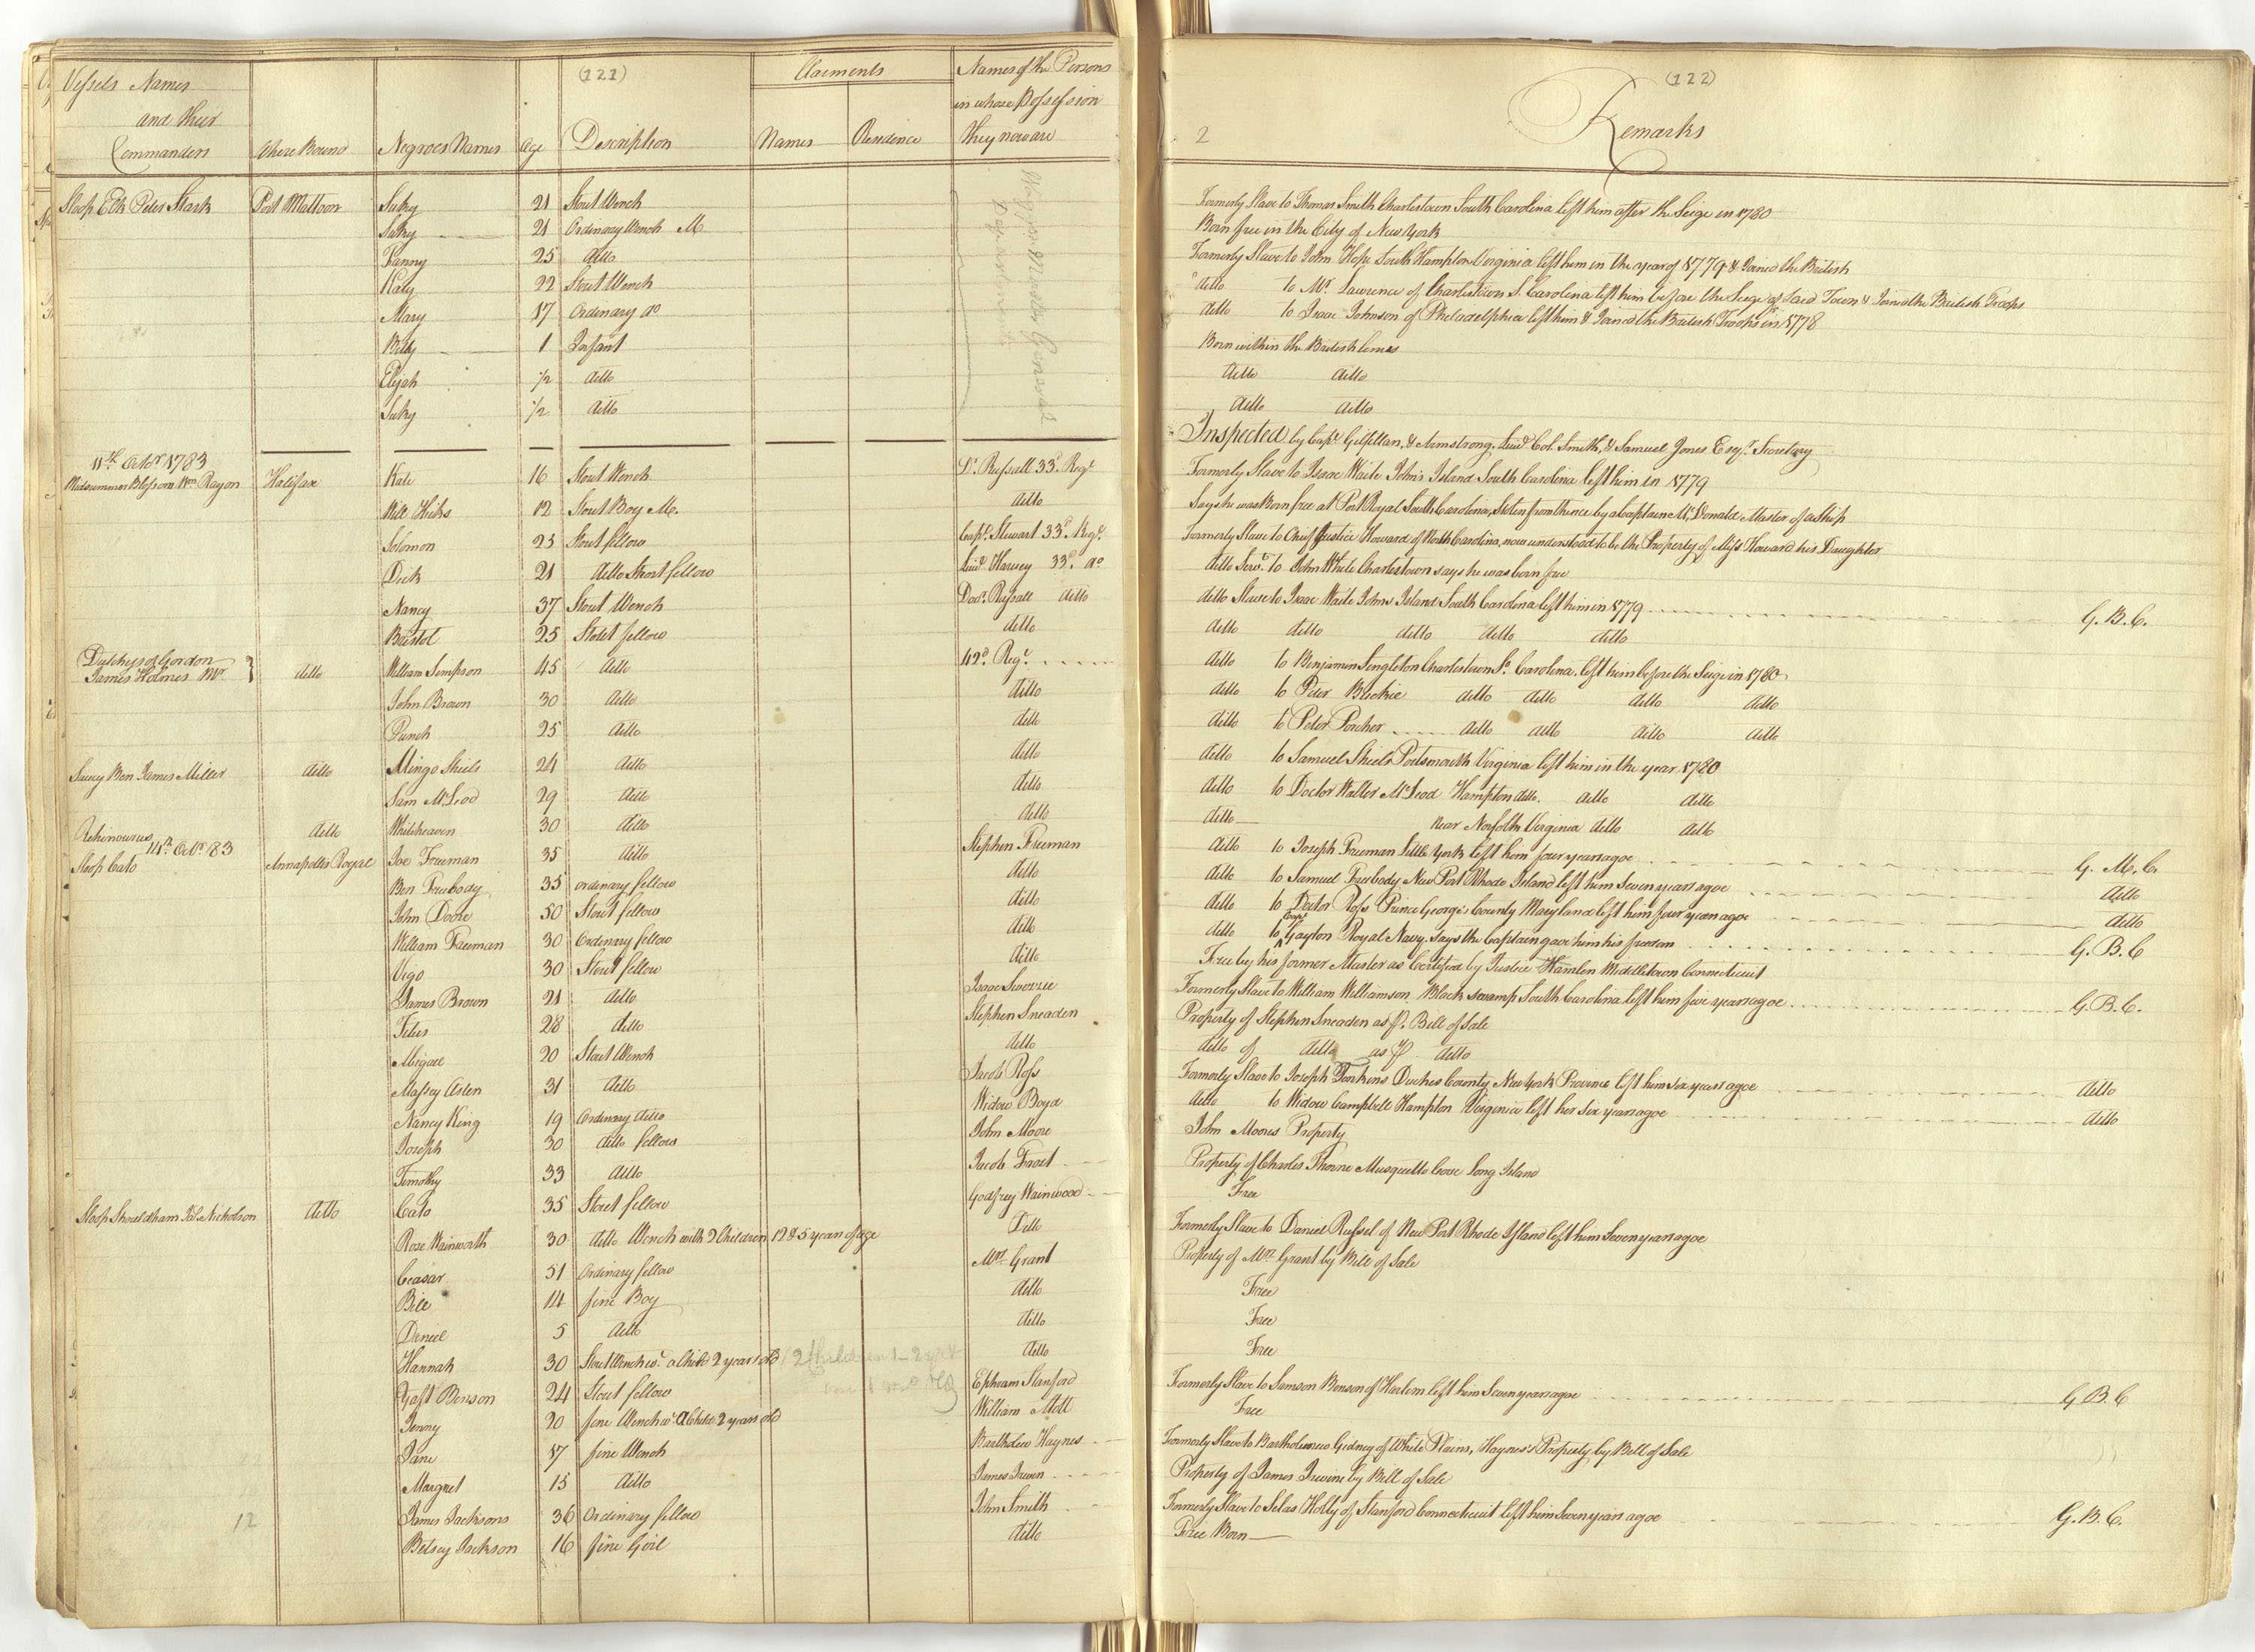 (121)
Vessels Names and their Commanders
Where Bound
Negroes Names
Age
Description
Claiments
Names
Residence
Names of the Persons in whose Possession they now are
(122)
2
Remarks
Sloop Elk Peter Stark Port Mattoon Sukey 21 Stout Wench Formerly Slave to Thomas Smith Charlestown South Carolina left him after the Seige in 1780
Sukey 21 Ordinary Wench M Born free in the City of New York
Fanny 25 ditto Formerly Slave to John Hope South Hampton Virginia left him in the year of 1779 & Joined the British
Katy 22 Stout Wench ditto to Mr. Lawrence of Charlestown S. Carolina left him before the Seige of said Town & Joined the British Troops
Mary 17 Ordinary do ditto to Isaac Johnson of Philadelphia left him & Joined the British Troops in 1778
Betty 1 Infant Born within the British lines
Elijah 1/2 ditto ditto ditto
Sukey 1/2 ditto ditto ditto
Waggon Master General Department
Inspected by Capt. Gilfillan, & Armstrong, Lieut. Col. Smith, & Samuel Jones Esqr. Secretary
11th Octr. 1783
Midsummer Blossom Wm. Rayon Halifax Kate 16 Stout Wench Dr. Russall 33d. Regt. Formerly Slave to Isaac Waite John's Island South Carolina left him in 1779
Will Hicks 12 Stout Boy M. ditto Says he was Born free at Port Royal South Carolina, Stolen from thence by a Captain McDonald Master of a Ship
Solomon 23 Stout fellow Capt. Stewart 33d. Regt. Formerly Slave to Chief Justice Howard of North Carolina, now understood to be the Property of Miss Howard his Daughter
Dick 21 ditto Short fellow Lieut. Harvey 33d. do ditto Servt. to John White Charlestown says he was born free
Nancy 37 Stout Wench Doct. Russall ditto ditto Slave to Isaac Waite Johns Island South Carolina left him in 1779 G. B. C.
Bristol 25 Stout fellow ditto ditto ditto ditto ditto ditto
Dutchess of Gordon James Holmes Mr. ditto William Simpson 45 ditto 42d. Regt. ditto to Benjamin Singleton Charlestown So. Carolina left him before the Seige in 1780
John Brown 30 ditto ditto ditto to Peter ditto ditto ditto ditto
Punch 25 ditto ditto ditto to Peter Porcher ditto ditto ditto ditto
Saucy Ben James Miller ditto Mingo Shiels 24 ditto ditto ditto to Samuel Shiels Portsmouth Virginia left him in the year 1780
Sam McLeod 29 ditto ditto ditto to Doctor Walter McLeod Hampton ditto. ditto ditto
ditto Whitehaven 30 ditto ditto ditto near Norfolk Virginia ditto ditto
14th. Octr. 83
Sloop Cato Annapolis Royal Joe Freeman 35 ditto Stephen Freeman ditto to Joseph Freeman Little York left him four years agoe G. M. C.
Ben Freebody 35 ordinary fellow ditto ditto to Samuel Freebody New Port Rhode Island left him Seven years agoe ditto
John Dove 50 Stout fellow ditto ditto to Doctor Ross Prince George's County Maryland left him four years agoe ditto
William Freeman 30 Ordinary fellow ditto ditto to Capt. Gayton Royal Navy. says the Captain gave him his freedom G. B. C
Vigo 30 Stout fellow ditto Free by his former Master as Certified by Justice Hamlen Middletown Connecticut
James Brown 21 ditto Isaac Formerly Slave to William Williamson Black swamp South Carolina left him five years agoe G. B. C.
28 ditto Stephen Sneaden Property of Stephen Sneaden as pr. Bill of Sale
Abigail 20 Stout Wench ditto ditto of ditto as pr ditto
Massey 31 ditto Jacob Ross Formerly Slave to Joseph Duches County New York Province left him six years agoe ditto
Nancy King 19 Ordinary ditto Widow Boyd ditto to Widow Campbell Hampton Virginia left her six years agoe ditto
Joseph 30 ditto fellow John Moore John Moores Property
Timothy 33 ditto Jacob Frost Property of Charles Thorne Musquetto Cove Long Island
Sloop Shouldham ditto Cato 35 Stout fellow Godfrey Wainwood Free
Rose Wainworth 30 ditto Wench with 2 Children 12 & 5 years of age Ditto Formerly Slave to Daniel Russel of New Port Rhode Island left him Seven years agoe
Ceasar 51 Ordinary fellow Mrs. Grant Property of Mrs. Grant by Bill of Sale
Bill 14 fine Boy ditto Free
Daniel 5 ditto ditto Free
Hannah 30 Stout Wench wt. a Child 2 years old ditto Free
Gast Benson 24 Stout fellow Ephraim Stanford Formerly Slave to Samson Benson of Harlem left him Seven years agoe G. B. C
Jenny 20 fine Wench wt. a Child 2 years old William Stott Free
Jane 17 fine Wench Bartholew Haynes Formerly Slave to Bartholemew Gidney of White Plains, Haynes's Property by Bill of Sale
Margret 15 ditto James Irwin Property of James Irwine by Bill of Sale
James Jacksons 36 Ordinary fellow John Smith Formerly Slave to Silas Holly of Stanford Connecticut left him Seven years agoe G. B. C.
Betsey Jackson 16 fine Girl ditto Free Born
12